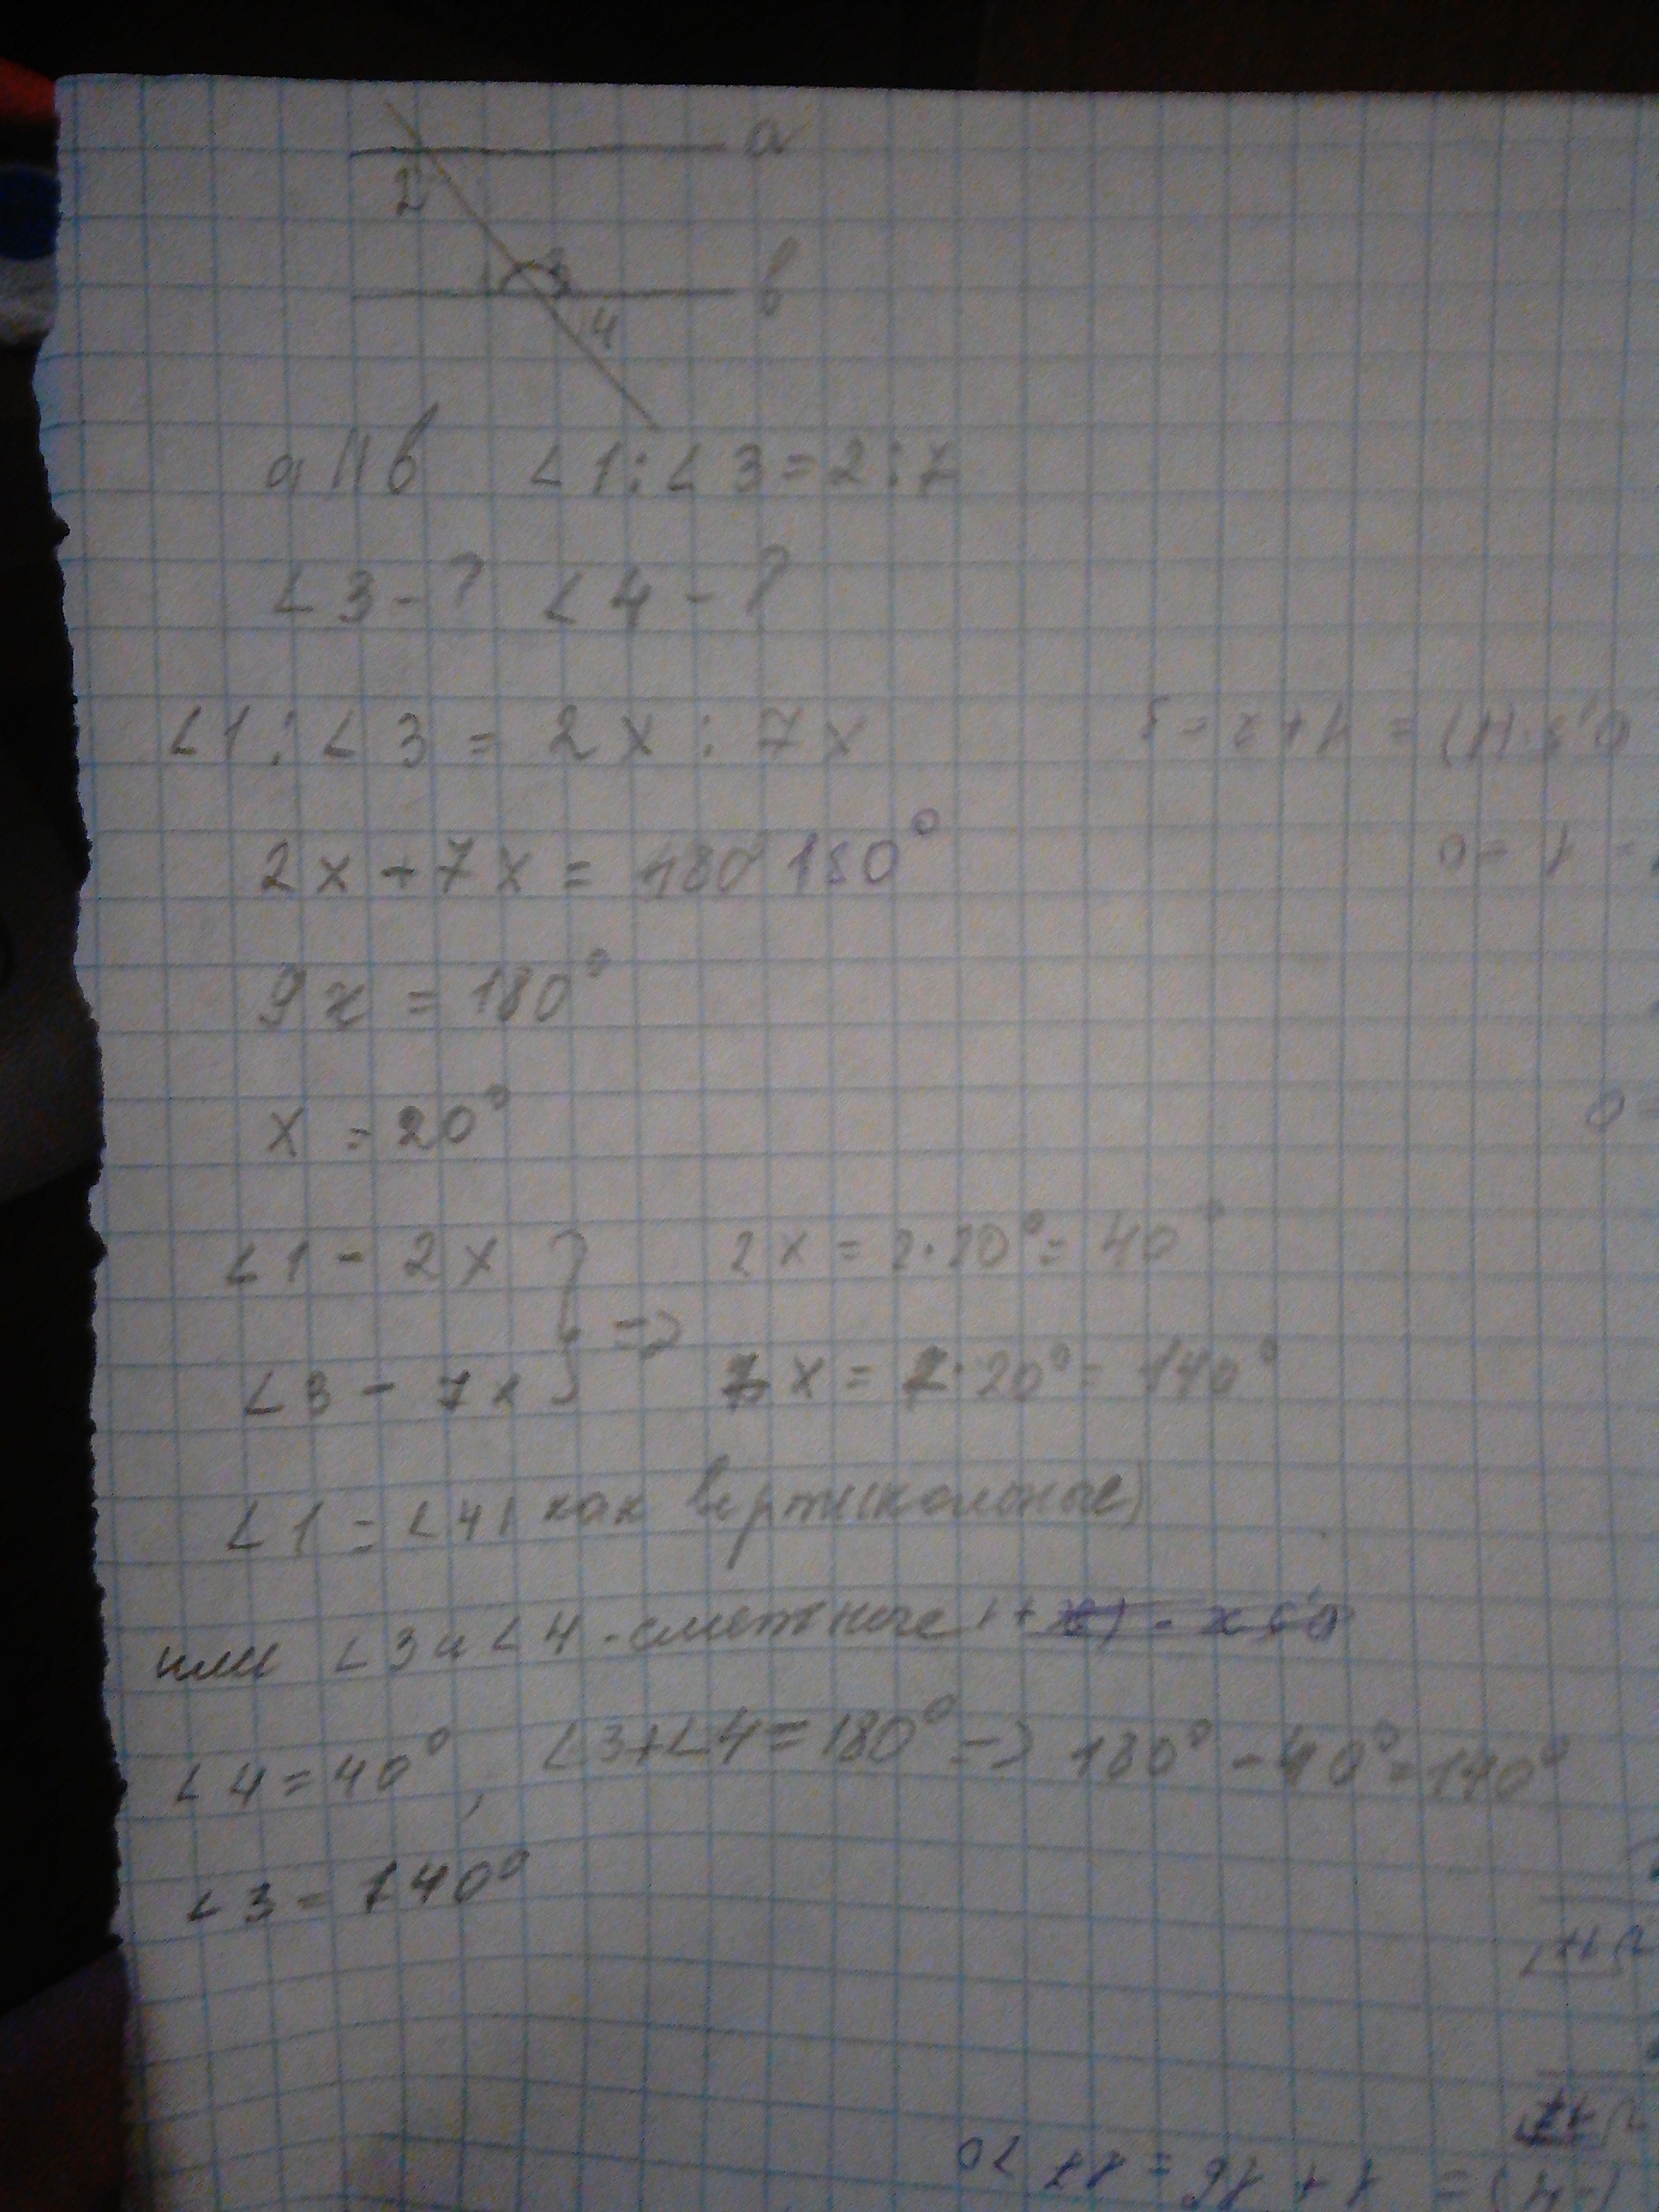 a
2
1 3
b
4
a || b ∠1 : ∠3 = 2 : 7
∠3 - ? ∠4 - ?
∠1 : ∠3 = 2x : 7x
2x + 7x = 180 180°
9x = 180°
x = 20°
∠1 - 2x } => 2x = 2·20° = 40°
∠3 - 7x 7x = 7·20° = 140°
∠1 = ∠4 ( как вертикальные)
или ∠3 и ∠4 - смежные
∠4 = 40°, ∠3+∠4 = 180° => 180° - 40° = 140°
∠3 = 140°